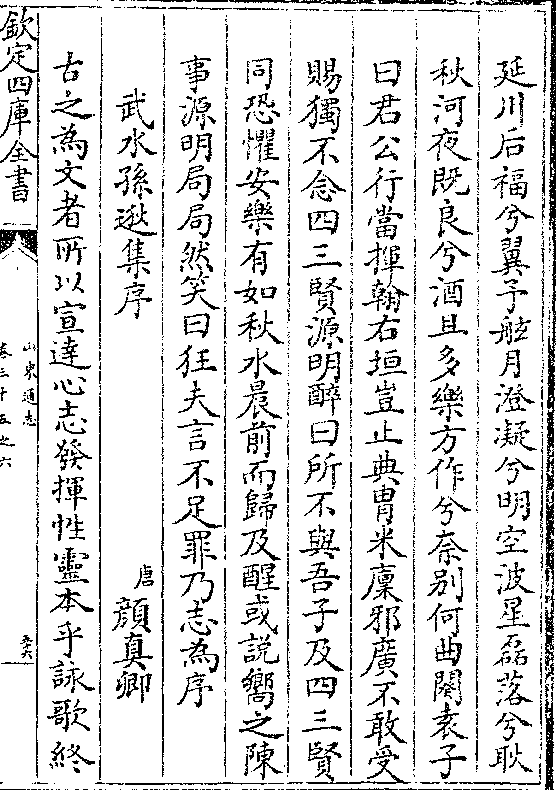 延川后福兮翼予舷月澄凝兮明空波星磊落兮耿
秋河夜既良兮酒且多樂方作兮奈別何曲闋袁子
曰君公行當揮翰右垣豈止典胄米廩邪廣不敢受
賜獨不念四三賢源明醉曰所不與吾子及四三賢
同恐懼安樂有如秋水晨前而歸及醒或說嚮之陳
事源明局局然笑曰狂夫言不足罪乃志為序
武水孫逖集序
唐 顏真卿
古之為文者所以宣達心志發揮性靈本乎詠歌終
欽定四庫全書
山東通志
卷三十五之六